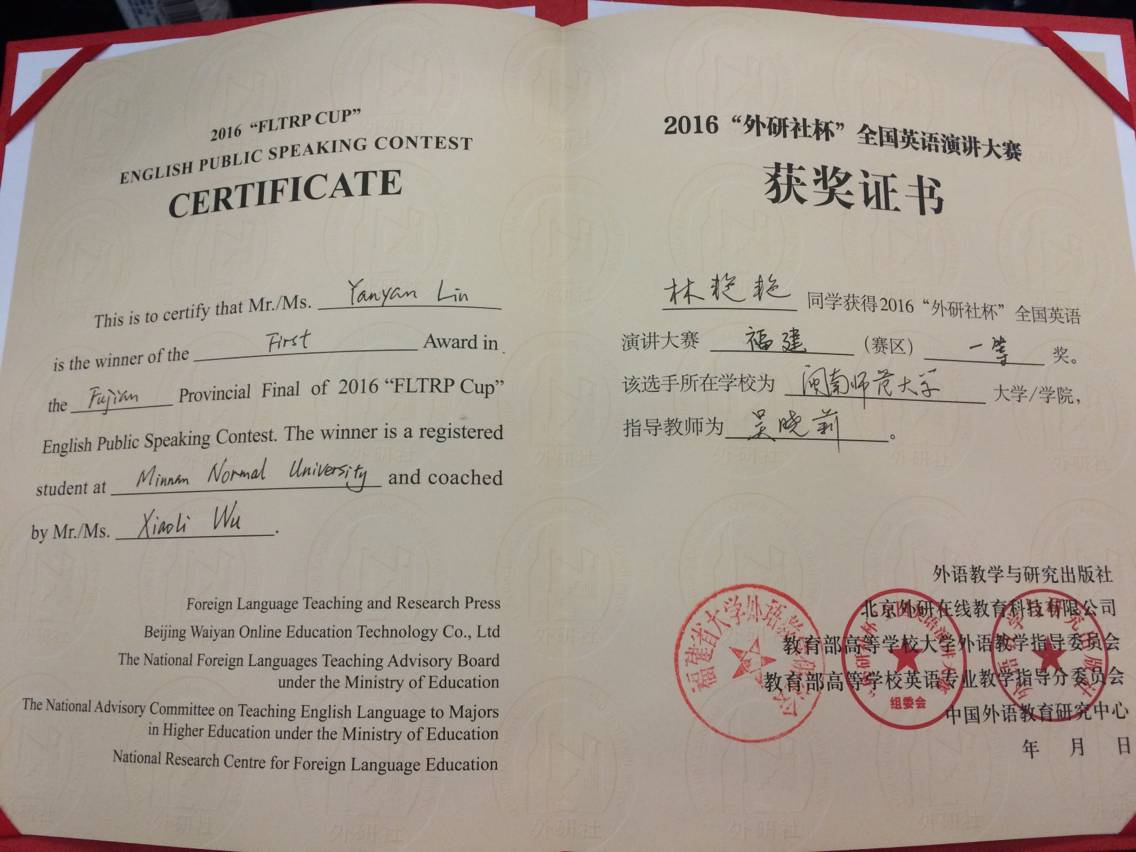 2016 “FLTRP CUP”
ENGLISH PUBLIC SPEAKING CONTEST
CERTIFICATE
This is to certify that Mr./Ms. Yanyan Lin
is the winner of the First Award in
the Fujian Provincial Final of 2016 “FLTRP Cup”
English Public Speaking Contest. The winner is a registered
student at Minnan Normal University and coached
by Mr./Ms. Xiaoli Wu.
Foreign Language Teaching and Research Press
Beijing Waiyan Online Education Technology Co., Ltd
The National Foreign Languages Teaching Advisory Board
under the Ministry of Education
The National Advisory Committee on Teaching English Language to Majors
in Higher Education under the Ministry of Education
National Research Centre for Foreign Language Education
2016“外研社杯”全国英语演讲大赛
获奖证书
林艳艳 同学获得2016“外研社杯”全国英语
演讲大赛 福建 (赛区) 一等 奖。
该选手所在学校为 闽南师范大学 大学/学院,
指导教师为 吴晓莉。
外语教学与研究出版社
北京外研在线教育科技有限公司
教育部高等学校大学外语教学指导委员会
教育部高等学校英语专业教学指导分委员会
中国外语教育研究中心
年 月 日
福建省大学外语
组委会
外研社